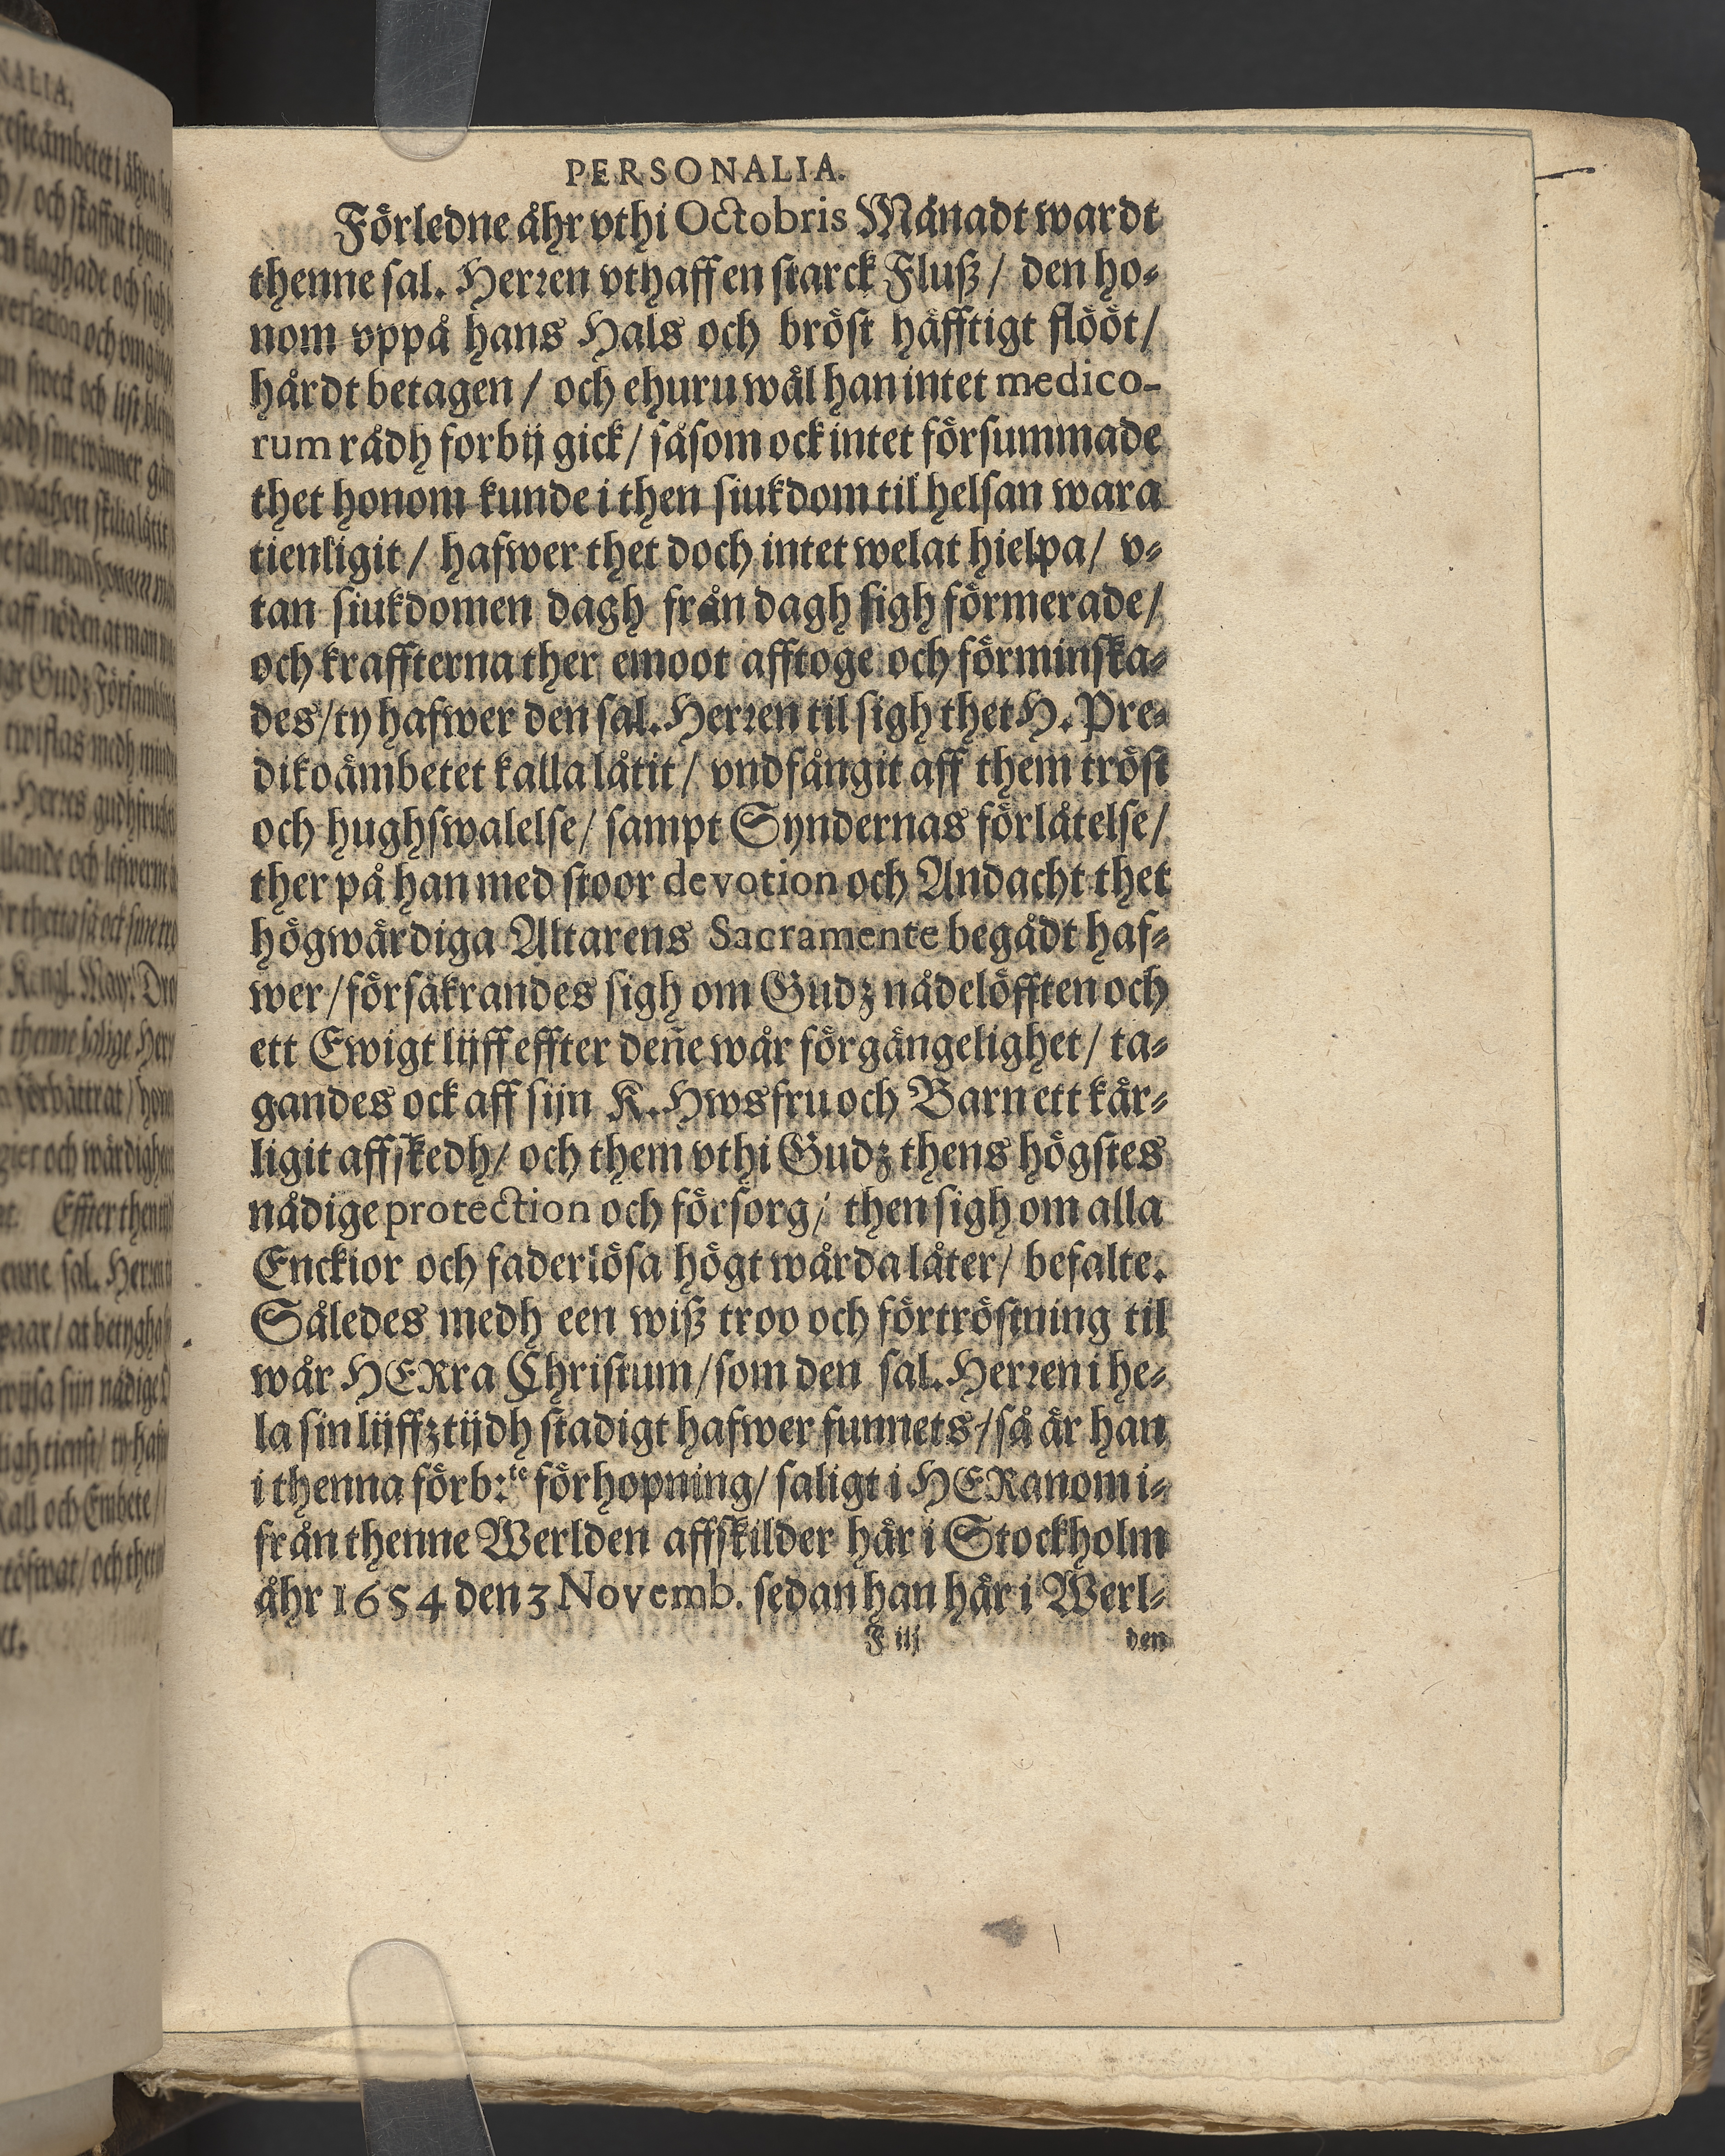 PERSONALIA.
Förledne åhr vthi Octobris Månadt wardt
thenne sal. Herren vthaff en starck Fluß / den ho-
nom vppå hans Hals och bröst häfftigt flööt /
hårdt betagen / och ehuru wäl han intet medico-
rum rådh forbij gick / såsom ock intet försummade
thet honom kunde i then siukdom til helsan wara
tienligit / hafwer thet doch intet welat hielpa / v-
tan siukdomen dagh från dagh sigh förmerade /
och kraffterna ther emoot afftoge och förminska-
des / ty hafwer den sal. Herren til sigh thet H. Pre-
dikoämbetet kalla låtit / vndfångit aff them tröst
och hughswalelse / sampt Syndernas förlåtelse /
ther på han med stoor devotion och Andacht thet
högwärdiga Altarens Sacramente begådt haf-
wer / försäkrandes sigh om Gudz nådelöfften och
ett Ewigt lijff effter deñe wår förgängelighet / ta-
gandes ock aff sijn K. Hwsfru och Barn ett kär-
ligit affskedh / och them vthi Gudz thens högstes
nådige protection och försorg / then sigh om alla
Enckior och faderlösa högt wårda låter / befalte.
Således medh een wiß troo och förtröstning til
wår HERra Christum / som den sal. Herren i he-
la sin lijffztijdh stadigt hafwer funnets / så är han
i thenna förb:te förhopning / saligt i HERanom i-
från thenne Werlden affskilder här i Stockholm
åhr 1654 den 3 Novemb. sedan han här i Werl-
F iij den